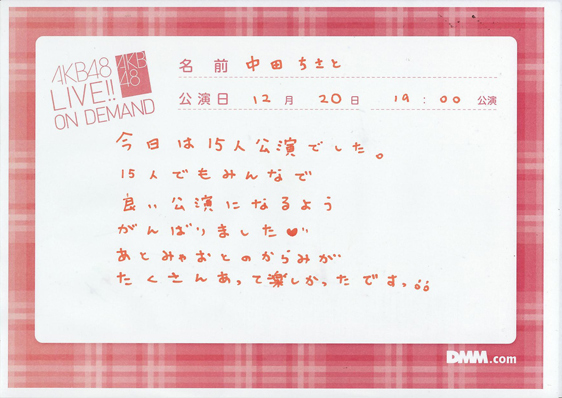 AKB48
LIVE!!
ON DEMAND
AKB
48
名前 中田ちさと
公演日 12月 20日 19:00 公演
今日は15人公演でした。
15人でもみんなで
良い公演になるよう
がんばりました♥
あとみゃおとのからみが
たくさんあって楽しかったですっ
DMM.com